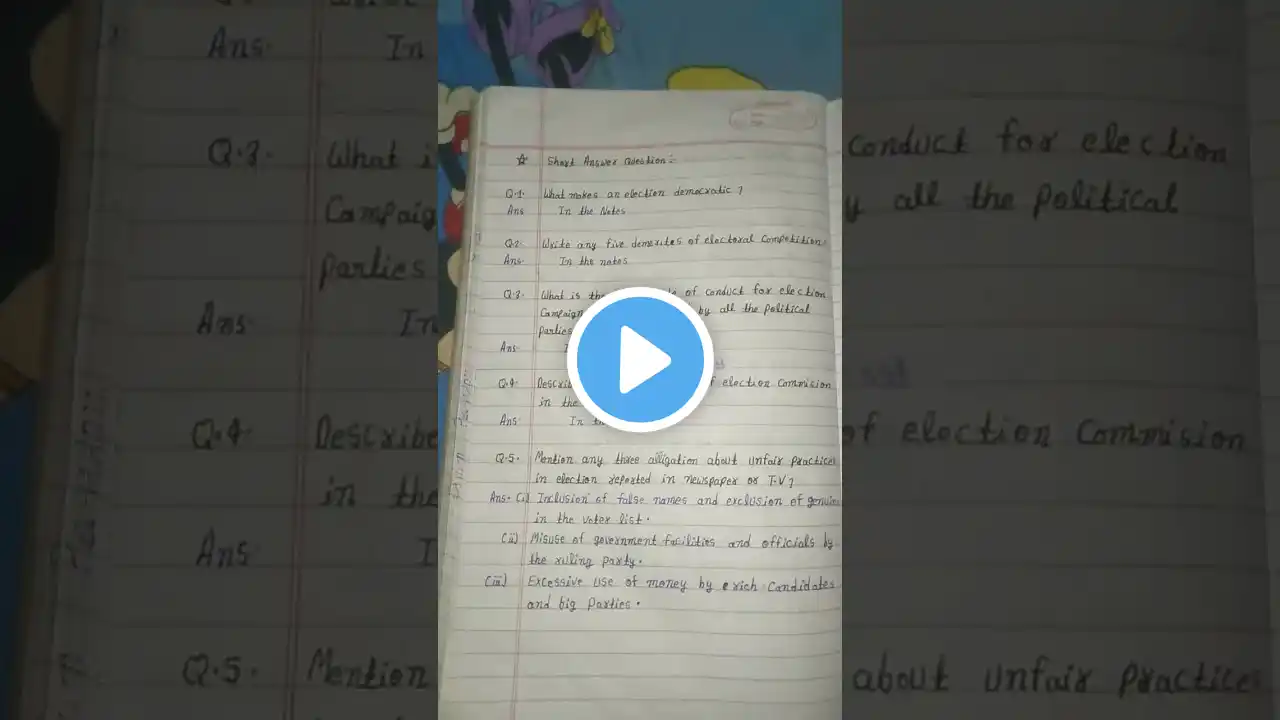 ☆ Short Answer Question :-
Q.1. What makes an election democratic ?
Ans In the Notes
Q.2. Write any five demerites of electoral Competition.
Ans. In the notes
Q.3. What is the of conduct for election
Campaign by all the political
parties
Ans.
Q.4. Describe of election Commision
in the
Ans. In
Q.5. Mention any three alligation about unfair practices
in election reported in newspaper or T.V ?
Ans. (i) Inclusion of false names and exclusion of genuine
in the voter list.
(ii) Misuse of government facilities and officials by
the ruling party.
(iii) Excessive use of money by rich Candidates
and big parties.